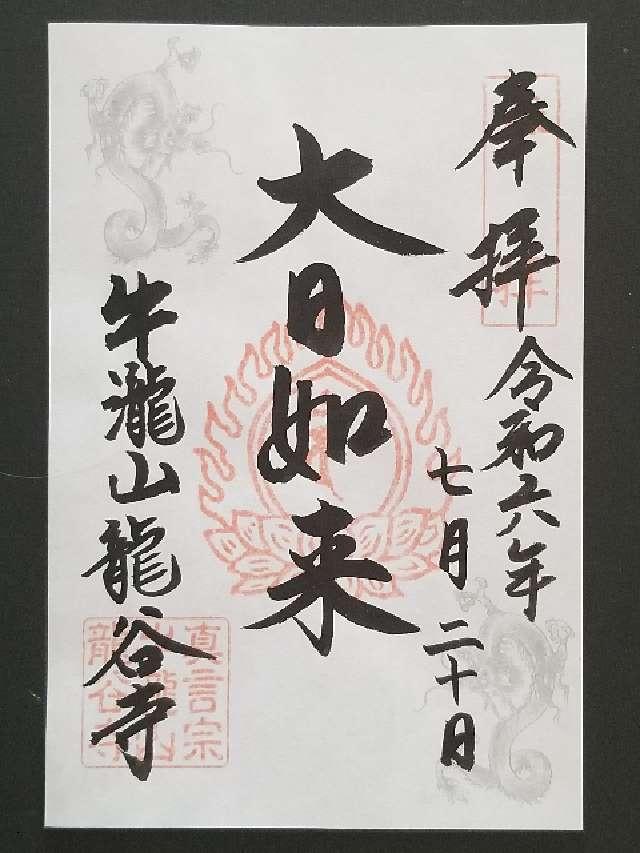 奉拝
令和六年
七月二十日
大日如来
牛瀧山龍谷寺
真言宗
牛瀧山
龍谷寺